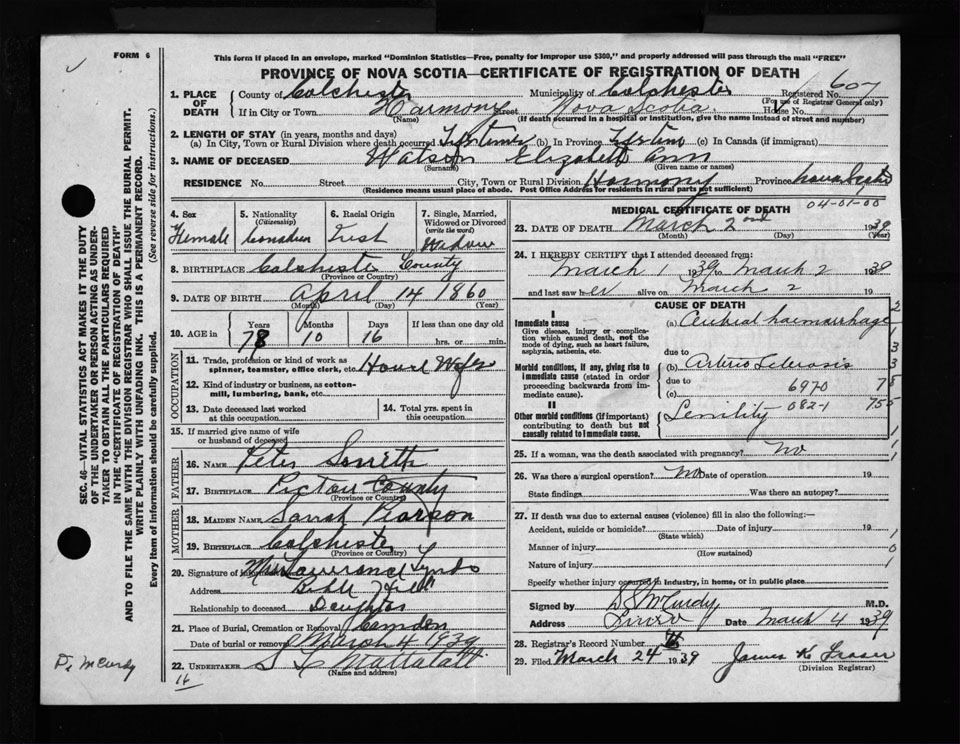 FORM 6
This form if placed in an envelope, marked "Dominion Statistics—Free, penalty for improper use $300," and properly addressed will pass through the mail "FREE"
PROVINCE OF NOVA SCOTIA—CERTIFICATE OF REGISTRATION OF DEATH
1. PLACE OF DEATH
County of Colchester Municipality of Colchester Registered No. 607
(For use of Registrar General only)
If in City or Town Harmony Street Nova Scotia House No.
(Name) (If death occurred in a hospital or institution, give the name instead of street and number)
2. LENGTH OF STAY (in years, months and days)
(a) In City, Town or Rural Division where death occurred Lifetime (b) In Province Lifetime (c) In Canada (if immigrant)
3. NAME OF DECEASED Watson Elizabeth Ann
(Surname) (Given name or names)
RESIDENCE No. Street City, Town or Rural Division Harmony Province Nova Scotia
(Residence means usual place of abode. Post Office Address for residents in rural parts not sufficient)
4. Sex
Female
5. Nationality
(Citizenship)
Canadian
6. Racial Origin
Irish
7. Single, Married, Widowed or Divorced
(write the word)
Widow
8. BIRTHPLACE Colchester County
(Province or Country)
9. DATE OF BIRTH April 14 1860
(Month) (Day) (Year)
10. AGE in
Years Months Days If less than one day old
78 10 16 hrs. or min.
OCCUPATION
11. Trade, profession or kind of work as spinner, teamster, office clerk, etc. House Wife
12. Kind of industry or business, as cotton-mill, lumbering, bank, etc.
13. Date deceased last worked at this occupation
14. Total yrs. spent in this occupation
15. If married give name of wife or husband of deceased
FATHER
16. NAME Peter
17. BIRTHPLACE Pictou County
(Province or Country)
MOTHER
18. MAIDEN NAME Sarah Pearson
19. BIRTHPLACE Colchester
(Province or Country)
20. Signature of Mrs Lawrence Lynds
Address Bible Hill
Relationship to deceased Daughter
21. Place of Burial, Cremation or Removal Camden
Date of burial or removal March 4 1939
22. UNDERTAKER
(Name and address)
MEDICAL CERTIFICATE OF DEATH
04-01-00
23. DATE OF DEATH March 2nd 1939
(Month) (Day) (Year)
24. I HEREBY CERTIFY that I attended deceased from:
March 1 1939 to March 2 1939
and last saw her alive on March 2 19
CAUSE OF DEATH
I
Immediate cause
Give disease, injury or complication which caused death, not the mode of dying, such as heart failure, asphyxia, asthenia, etc.
(a) Cerebral haemorrhage
due to
Morbid conditions, if any, giving rise to immediate cause (stated in order proceeding backwards from immediate cause).
(b) Arterio Sclerosis
due to
(c) 6970
II
Other morbid conditions (if important) contributing to death but not causally related to immediate cause.
Senility 082-1
25. If a woman, was the death associated with pregnancy? No
26. Was there a surgical operation? No Date of operation 19
State findings Was there an autopsy?
27. If death was due to external causes (violence) fill in also the following:—
Accident, suicide or homicide? Date of injury 19
(State which)
Manner of injury
(How sustained)
Nature of injury
Specify whether injury occurred in industry, in home, or in public place
Signed by McCurdy M.D.
Address Truro Date March 4 1939
28. Registrar's Record Number
29. Filed March 24 1939 James K Fraser
(Division Registrar)
SEC. 46—VITAL STATISTICS ACT MAKES IT THE DUTY
OF THE UNDERTAKER OR PERSON ACTING AS UNDERTAKER TO OBTAIN ALL THE PARTICULARS REQUIRED
IN THE "CERTIFICATE OF REGISTRATION OF DEATH"
AND TO FILE THE SAME WITH THE DIVISION REGISTRAR WHO SHALL ISSUE THE BURIAL PERMIT.
WRITE PLAINLY WITH UNFADING INK. THIS IS A PERMANENT RECORD.
Every item of information should be carefully supplied. (See reverse side for instructions.)
D. McCurdy
16